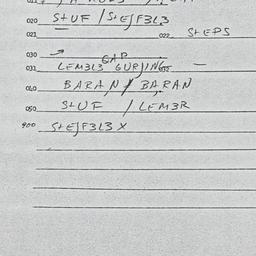 020 StUF / StEJF3L3
021 022 StEPS
030 → GAP
031 LEM3L3 GURJING
040 BARAN / BARAN
050 StUF / LEM3R
900 StEJF3L3 X